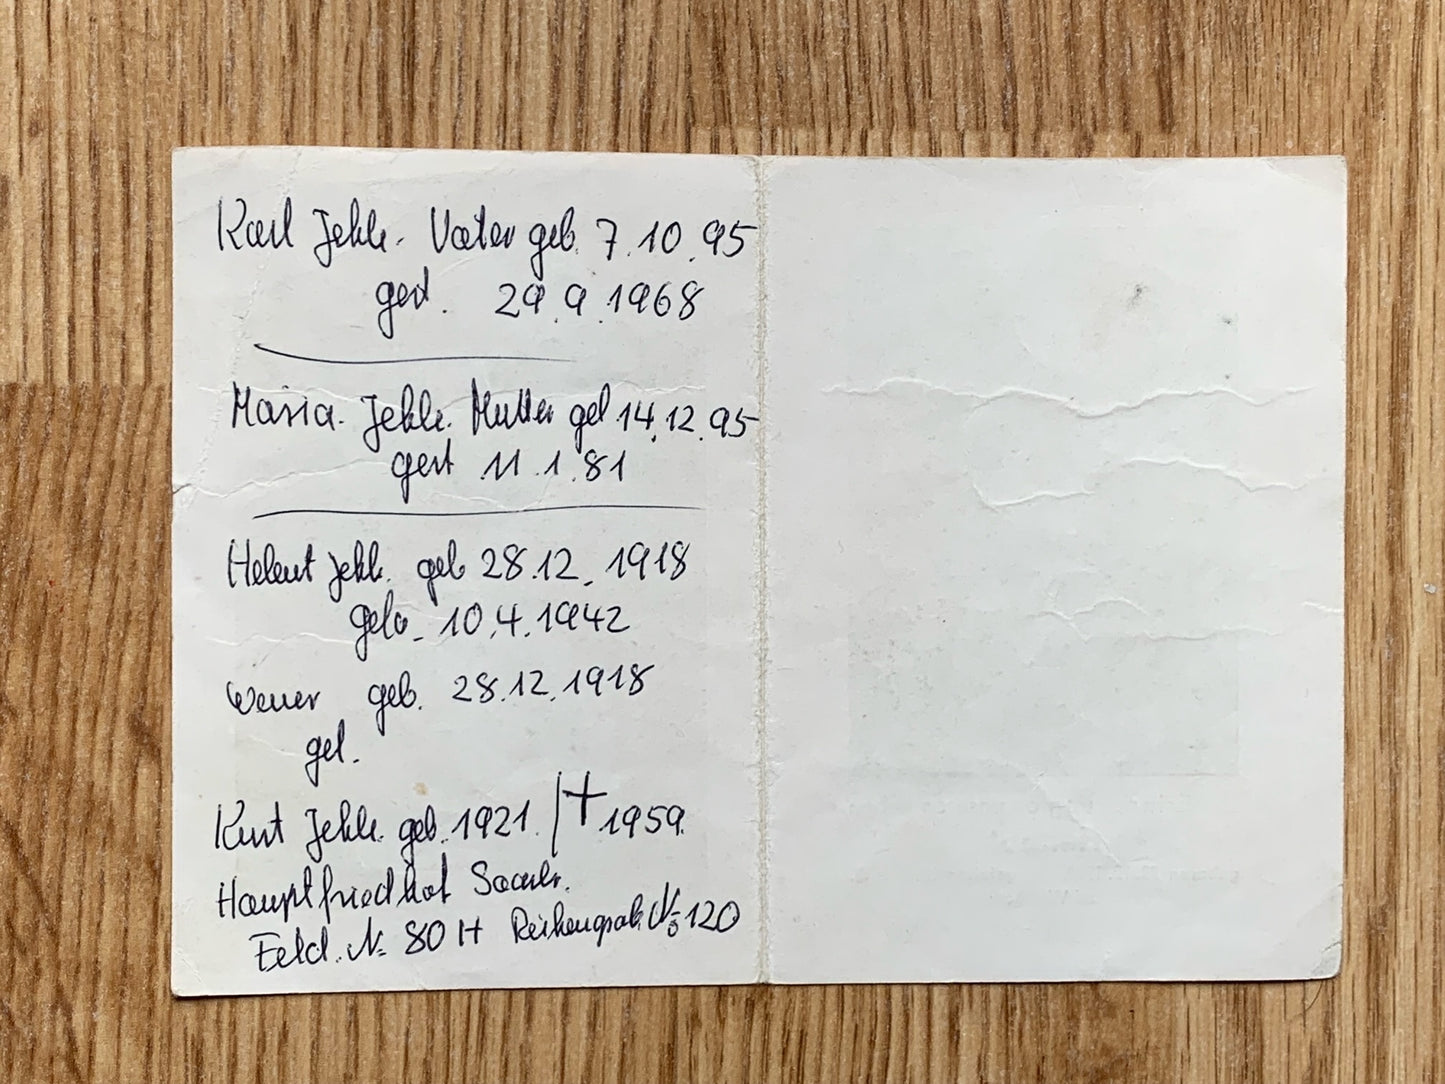 Karl Jekle. Vater geb. 7.10.95
gest. 29.9.1968
Maria. Jekle. Mutter geb 14.12.95
gest 11.1.81
Helmut Jekle. geb 28.12.1918
10.4.1942
Werner geb. 28.12.1918
gef.
Kurt Jekle. geb. 1921. | † 1959.
Hauptfriedhof Saarbr.
Feld. Nr. 80 H Reihengrab. Nr. 120